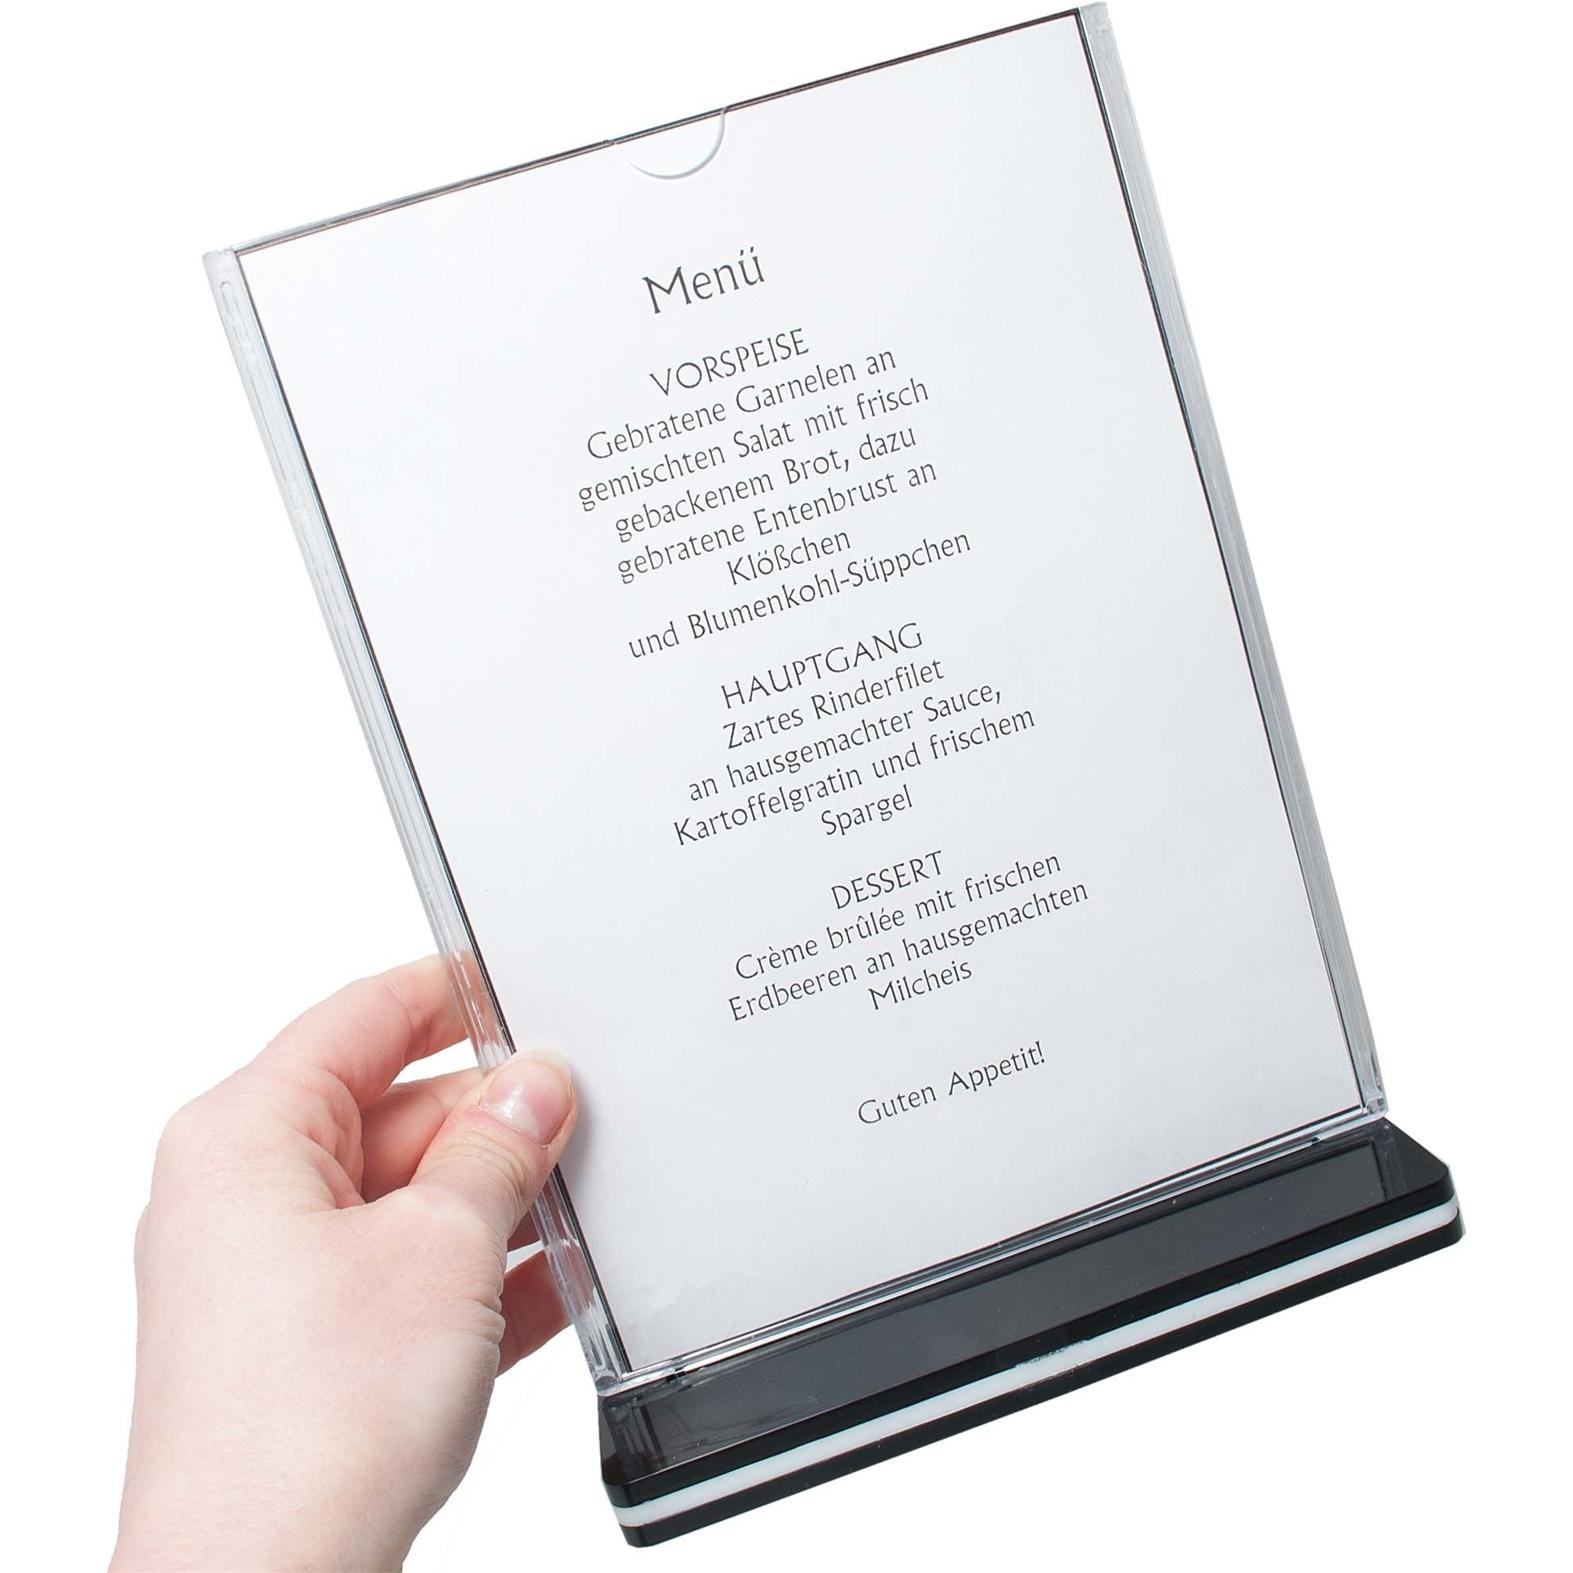 Menü
VORSPEISE
Gebratene Garnelen an
gemischten Salat mit frisch
gebackenem Brot, dazu
gebratene Entenbrust an
Klößchen
und Blumenkohl-Süppchen
HAUPTGANG
Zartes Rinderfilet
an hausgemachter Sauce,
Kartoffelgratin und frischem
Spargel
DESSERT
Crème brûlée mit frischen
Erdbeeren an hausgemachten
Milcheis
Guten Appetit!